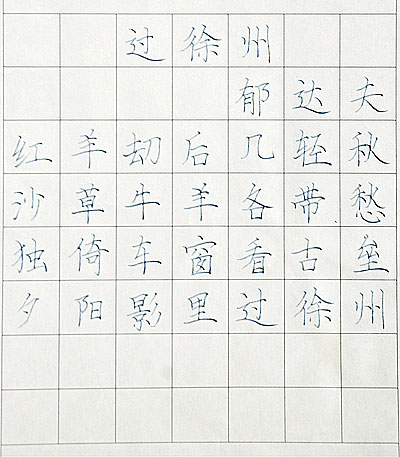 过徐州
郁达夫
红羊劫后几经秋
沙草牛羊各带愁
独倚车窗看古垒
夕阳影里过徐州